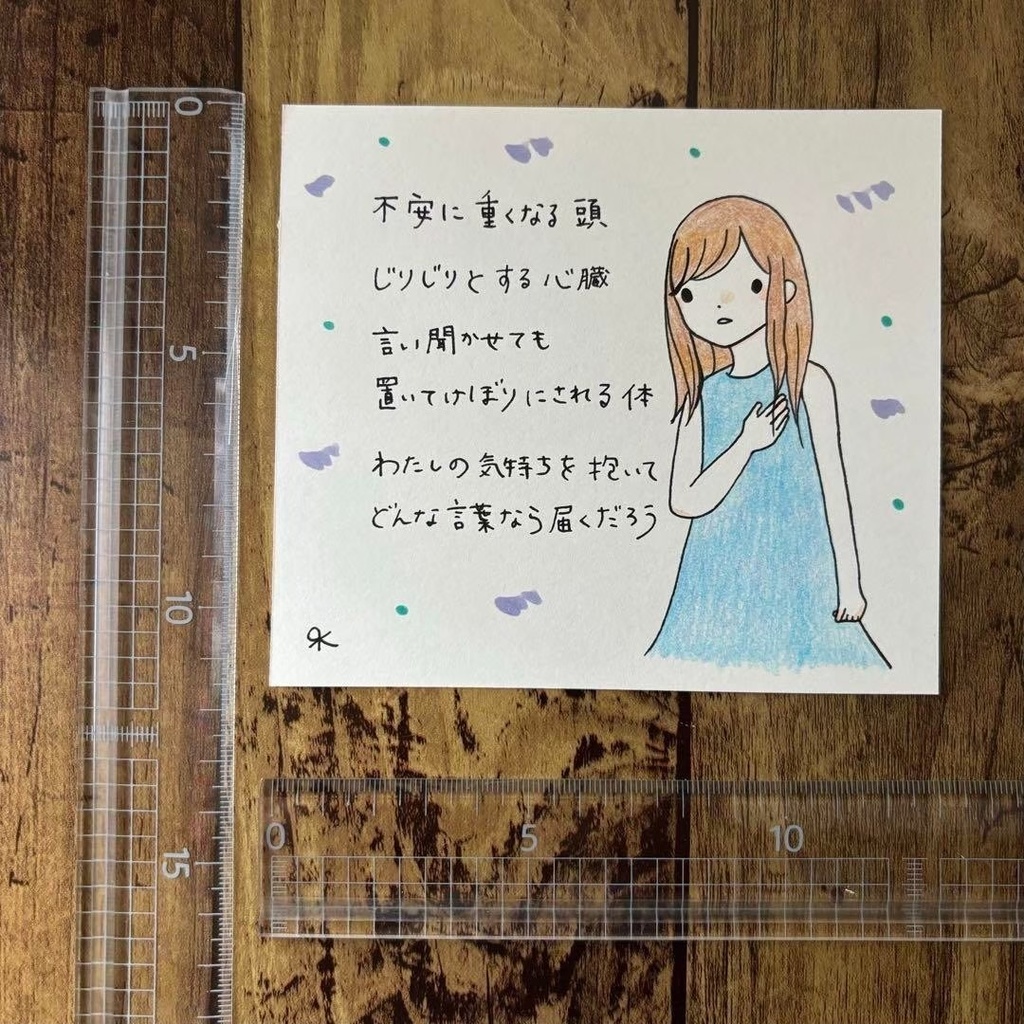 不安に重くなる頭
じりじりとする心臓
言い聞かせても
置いてけぼりにされる体
わたしの気持ちを抱いて
どんな言葉なら届くだろう
0
5
10
15
0
5
10